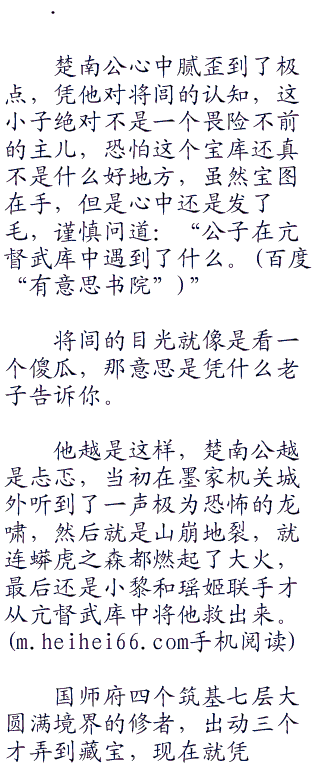 .
楚南公心中腻歪到了极
点，凭他对将闾的认知，这
小子绝对不是一个畏险不前
的主儿，恐怕这个宝库还真
不是什么好地方，虽然宝图
在手，但是心中还是发了
毛，谨慎问道：“公子在亢
督武库中遇到了什么。(百度
“有意思书院”)”
将闾的目光就像是看一
个傻瓜，那意思是凭什么老
子告诉你。
他越是这样，楚南公越
是忐忑，当初在墨家机关城
外听到了一声极为恐怖的龙
啸，然后就是山崩地裂，就
连蟒虎之森都燃起了大火，
最后还是小黎和瑶姬联手才
从亢督武库中将他救出来。
(m.heihei66.com手机阅读)
国师府四个筑基七层大
圆满境界的修者，出动三个
才弄到藏宝，现在就凭